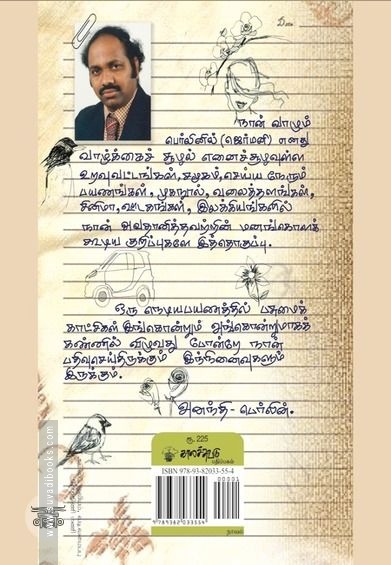 Date
நான் வாழும்
பெர்லினில் (ஜெர்மனி) எனது
வாழ்க்கைச் சூழல் எனைச்சூழவுள்ள
உறவுவட்டங்கள், சமூகம், செய்ய நேரும்
பயணங்கள், முகநூல், வலைத்தளங்கள்,
சினிமா, ஊடகங்கள், இலக்கியங்களில்
நான் அவதானித்தவற்றின் மனங்கொளக்
கூடிய குறிப்புகளே இத்தொகுப்பு.
ஒரு நெடியபயணத்தில் பசுமைக்
காட்சிகள் இங்கொன்றும் அங்கொன்றுமாகக்
கண்ணில் விழுவது போன்றே நான்
பதிவுசெய்திருக்கும் இந்நினைவுகளும்
இருக்கும்.
அனந்தி - பெர்லின்.
ரூ. 225
காலச்சுவடு
பதிப்பகம்
ISBN 978-93-82033-55-4
00001
9 789382 033554